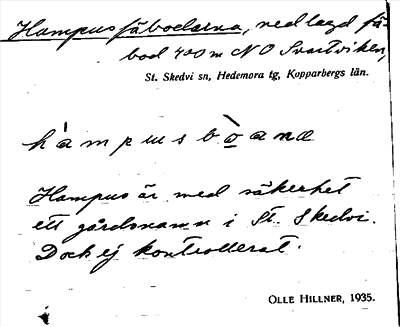 Hampusfäbodarna, nedlagd fä-
bod 400 m NO Svartviken,
St. Skedvi sn, Hedemora tg, Kopparbergs län.
hampusboana
Hampus är med säkerhet
ett gårdsnamn i St. Skedvi.
Dock ej kontrollerat.
OLLE HILLNER, 1935.